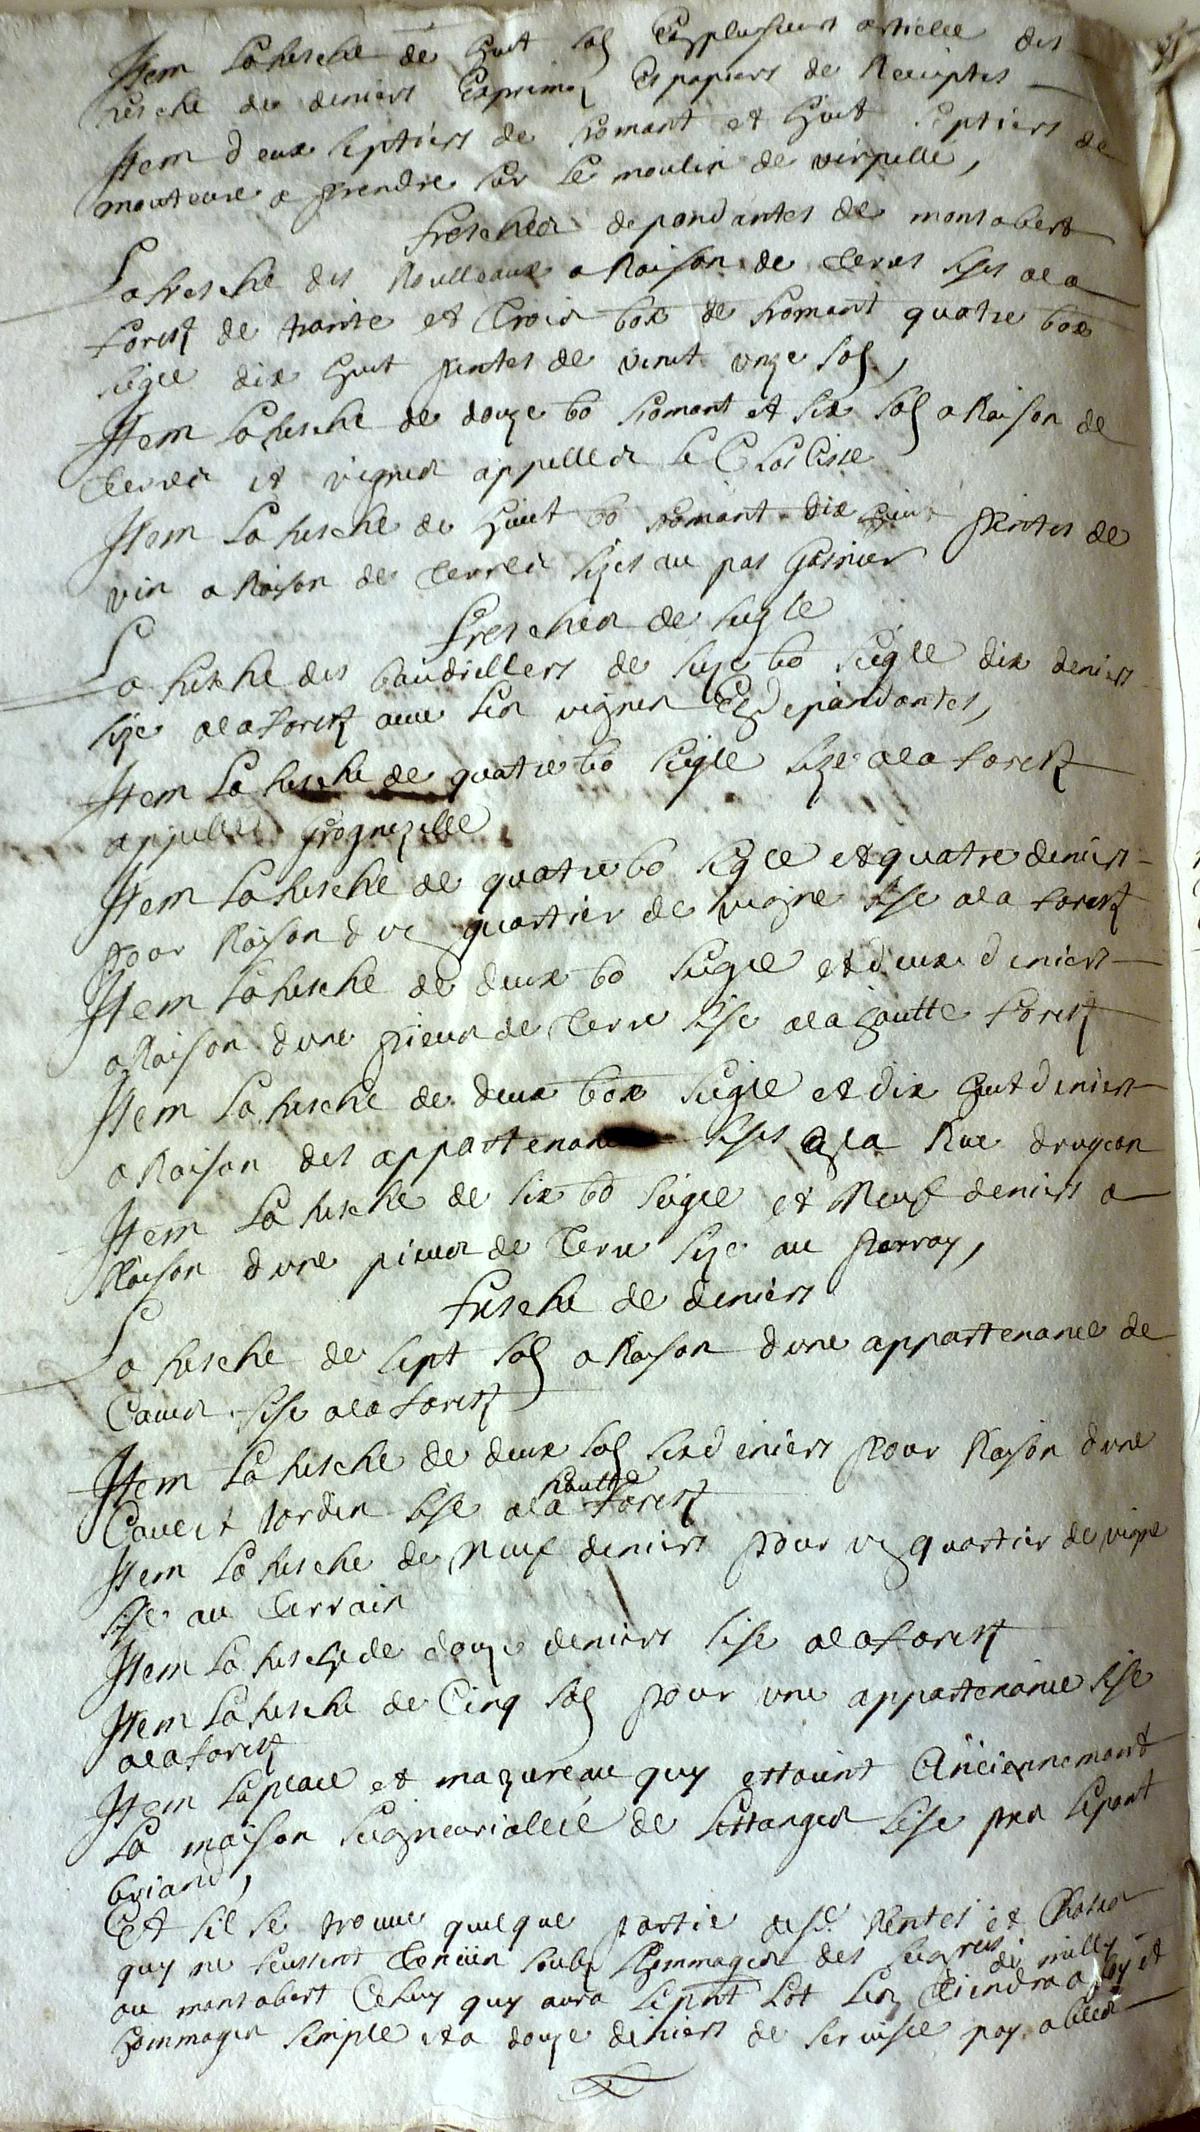 Item la fresche de huit solz en plusieurs articlee des
fresche de deniers exprimez es papiers de Receiptes
Item deux septiers de fromant et huit septiers de
mouteure a prendre sur le moulin de
fresches depandantes de montabert
La fresche des Roulleaux a Raison de terres sises a la
forest de trante et trois box de fromant quatre box
seigle dix huit pintes de vin et unze solz,
Item la fresche de douze bo fromant et six solz a Raison de
terres et vignes appellees le
Item la fresche de huit bo fromant dix huit pintes de
vin a Raison de terres sizes au pas Gasnier
fresches de seigle
La fresche des baudrillers de seze bo seigle dix deniers
size a la forest avec les vignes en depandantes,
Item la fresche de quatre bo seigle size a la forest
appellee
Item la fresche de quatre bo seigle et quatre deniers
pour Raison dun quartier de vigne sise a la forest
Item la fresche de deux bo seigle et deux deniers
a Raison dune pieces de terre sise a la haulte forest
Item la fresche de deux box seigle et dix huit deniers
a Raison des appartenances sises a la Rue drugeon
Item la fresche de six bo seigle et neuf deniers a
Raison dune pieces de terre size au perray,
fresche de deniers
La fresche de sept solz a Raison dune appartenance de
Caves sise a la forest
Item la fresche de deux solz six deniers pour Raison dune
Cave et Jardin sise a la haulte forest
Item la fresche de neuf deniers pour un quartier de vigne
sise au terrain
Item la fresche de douze deniers sise a la forest
Item la fresche de Cinq solz pour une appartenance sise
a la forest
Item la place et mazureau quy estoint Anciennemant
la maison seigneurialle de lestanges sise pres le pont
briand,
Et sil se trouve quelque partie desd. Rentes et Choses
quy ne feussent tenues soubz hommages des seigres de milly
ou montabert Celuy quy aura le pnt lot les tiendra a foy et
hommages simple et a douze deniers de servisce payables